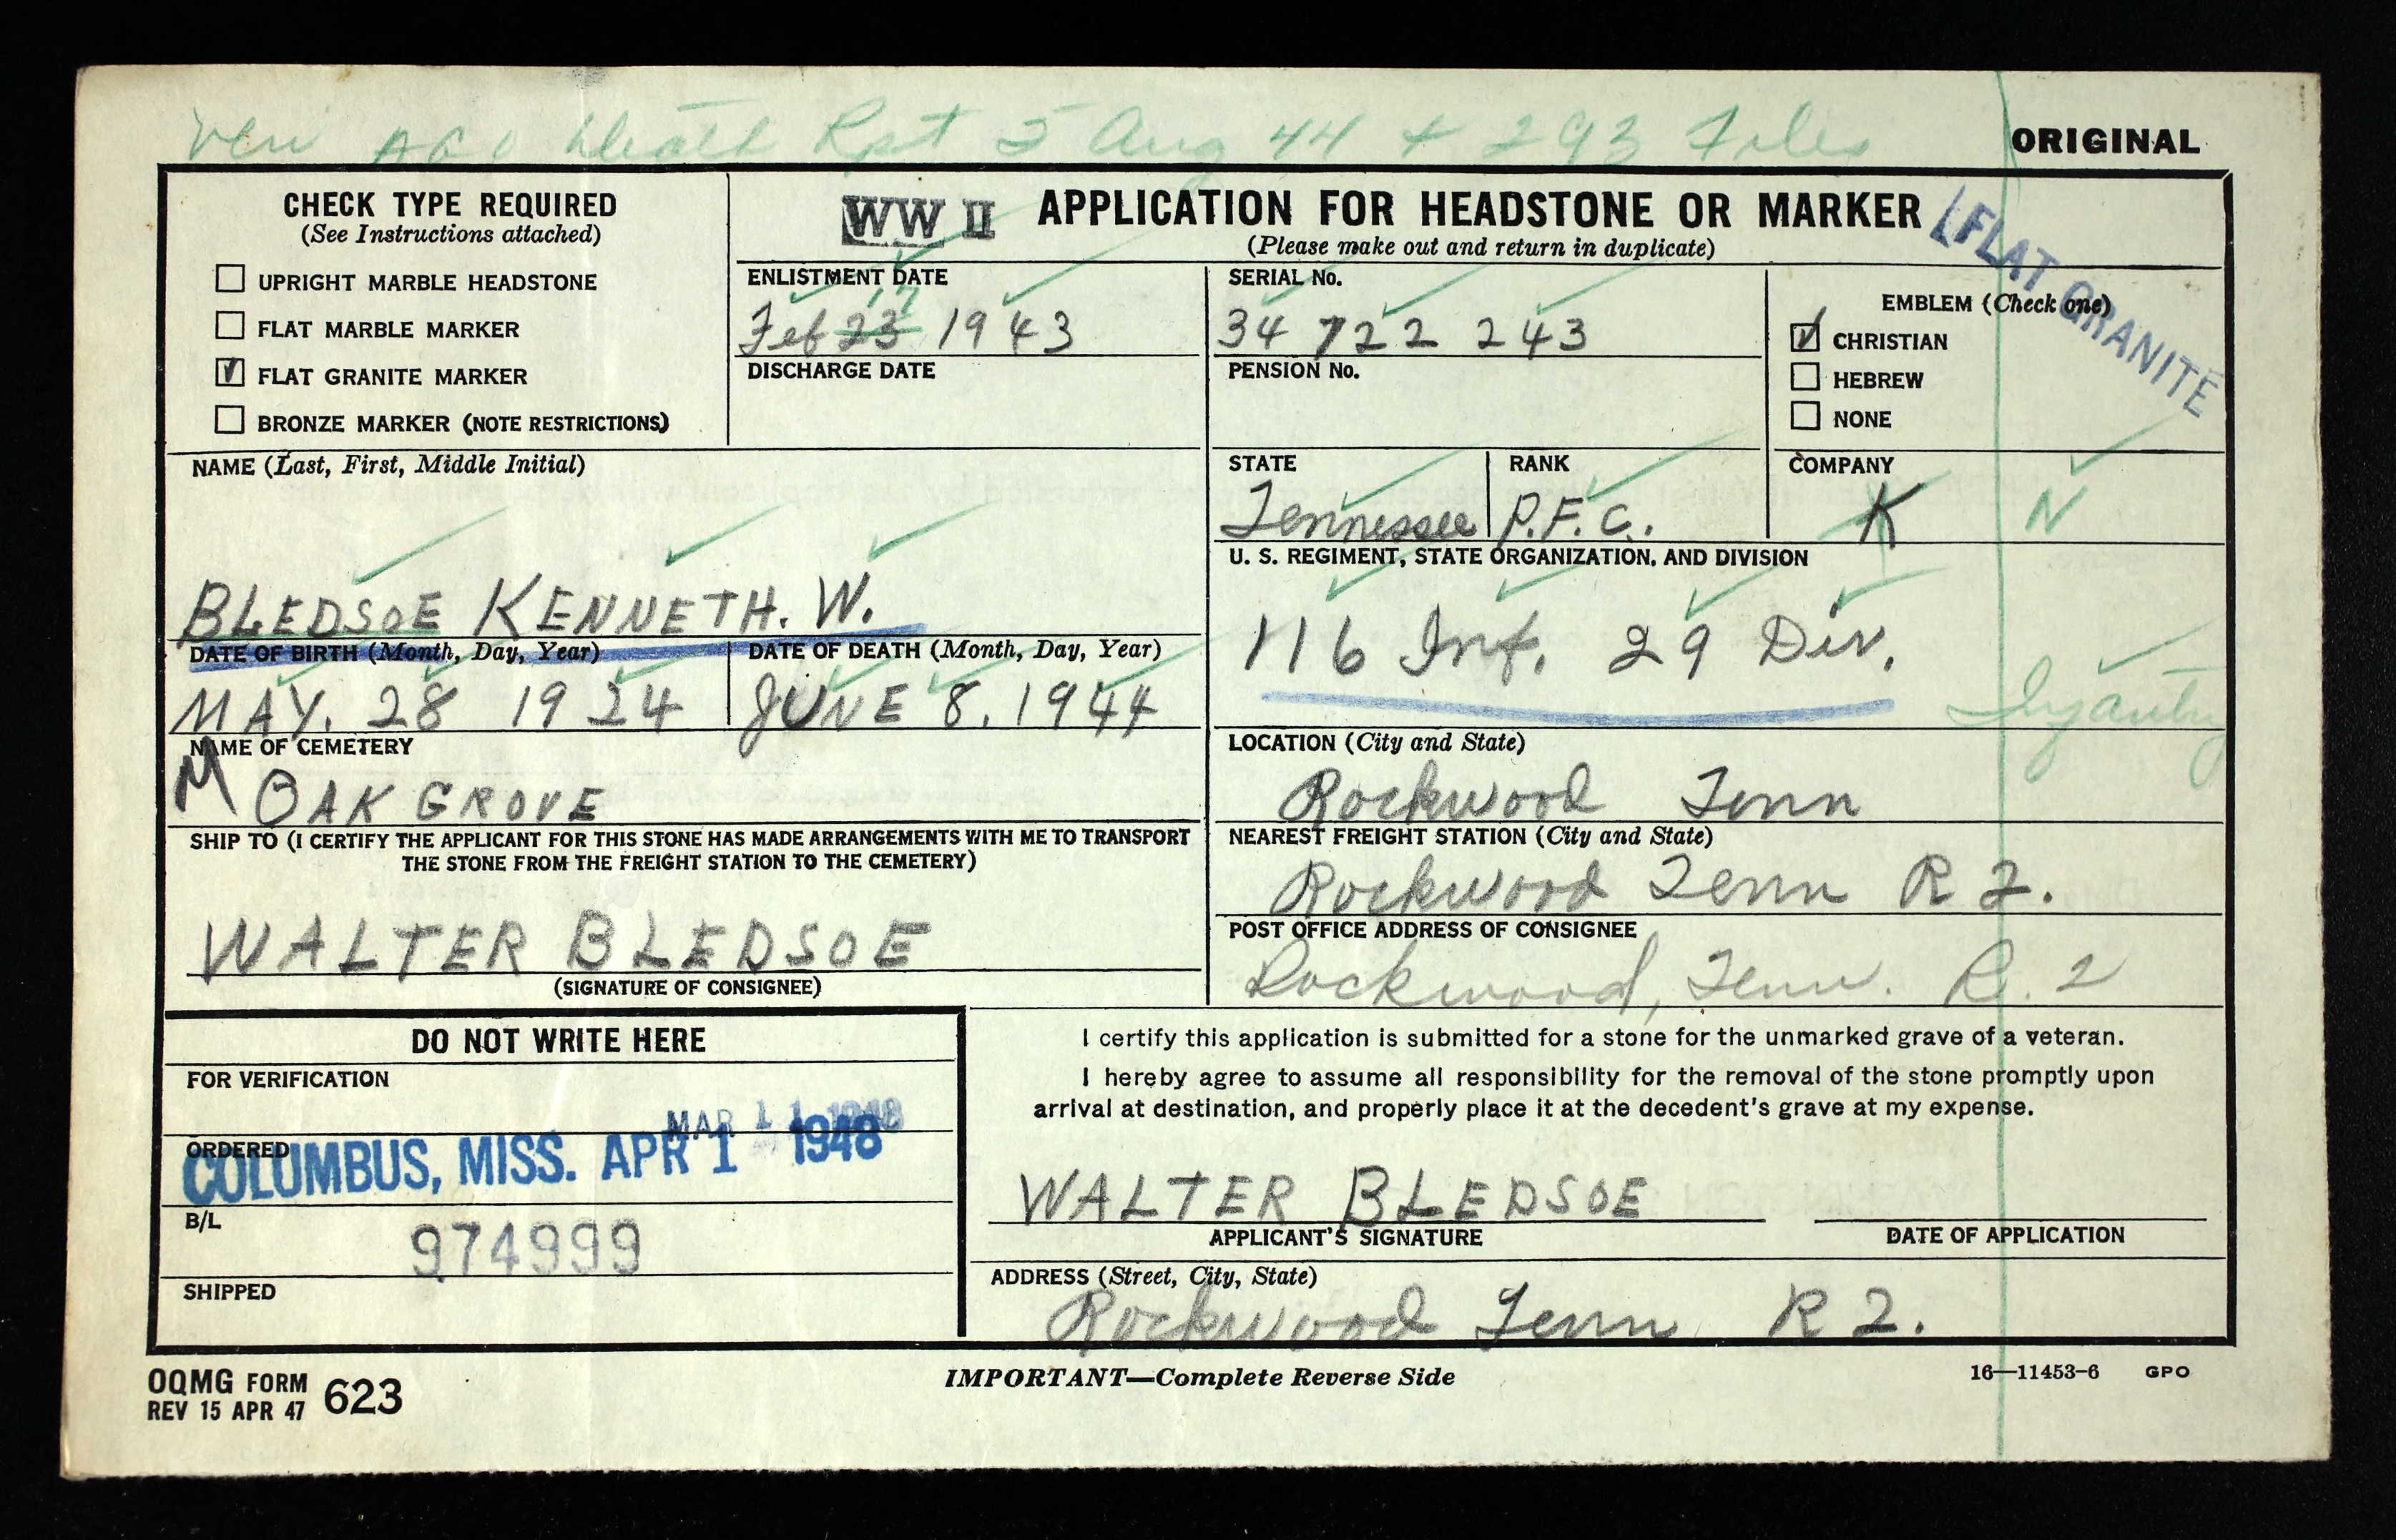 Veri AGO Death Rpt 5 Aug 44 + 293 Files
ORIGINAL
CHECK TYPE REQUIRED
(See Instructions attached)
UPRIGHT MARBLE HEADSTONE
FLAT MARBLE MARKER
FLAT GRANITE MARKER
BRONZE MARKER (NOTE RESTRICTIONS)
WW II APPLICATION FOR HEADSTONE OR MARKER
(Please make out and return in duplicate)
FLAT GRANITE
ENLISTMENT DATE
17
Feb 23 1943
DISCHARGE DATE
SERIAL No.
34 722 243
PENSION No.
EMBLEM (Check one)
CHRISTIAN
HEBREW
NONE
NAME (Last, First, Middle Initial)
BLEDSOE KENNETH. W.
STATE
Tennessee
RANK
P.F.C.
COMPANY
K N
U. S. REGIMENT, STATE ORGANIZATION, AND DIVISION
116 Inf. 29 Div.
Infantry
DATE OF BIRTH (Month, Day, Year)
MAY. 28 1924
DATE OF DEATH (Month, Day, Year)
JUNE 8. 1944
NAME OF CEMETERY
M OAK GROVE
LOCATION (City and State)
Rockwood Tenn
SHIP TO (I CERTIFY THE APPLICANT FOR THIS STONE HAS MADE ARRANGEMENTS WITH ME TO TRANSPORT
THE STONE FROM THE FREIGHT STATION TO THE CEMETERY)
WALTER BLEDSOE
(SIGNATURE OF CONSIGNEE)
NEAREST FREIGHT STATION (City and State)
Rockwood Tenn R 2.
POST OFFICE ADDRESS OF CONSIGNEE
Rockwood, Tenn. R. 2
DO NOT WRITE HERE
FOR VERIFICATION
MAR 11 1948
ORDERED
COLUMBUS, MISS. APR 1 1948
B/L
974999
SHIPPED
I certify this application is submitted for a stone for the unmarked grave of a veteran.
I hereby agree to assume all responsibility for the removal of the stone promptly upon
arrival at destination, and properly place it at the decedent's grave at my expense.
WALTER BLEDSOE
APPLICANT'S SIGNATURE
DATE OF APPLICATION
ADDRESS (Street, City, State)
Rockwood Tenn R 2.
OQMG FORM
REV 15 APR 47 623
IMPORTANT—Complete Reverse Side
16—11453-6 GPO